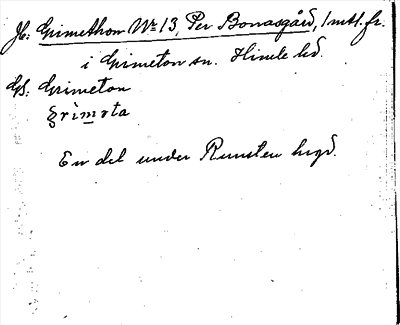 Jb: Grimethon No 13, Per Bonasgård, 1 mtl. fr.
i Grimeton sn. Himle hd.
GS: Grimeton
grìmota
En del under Runsten hrgd.